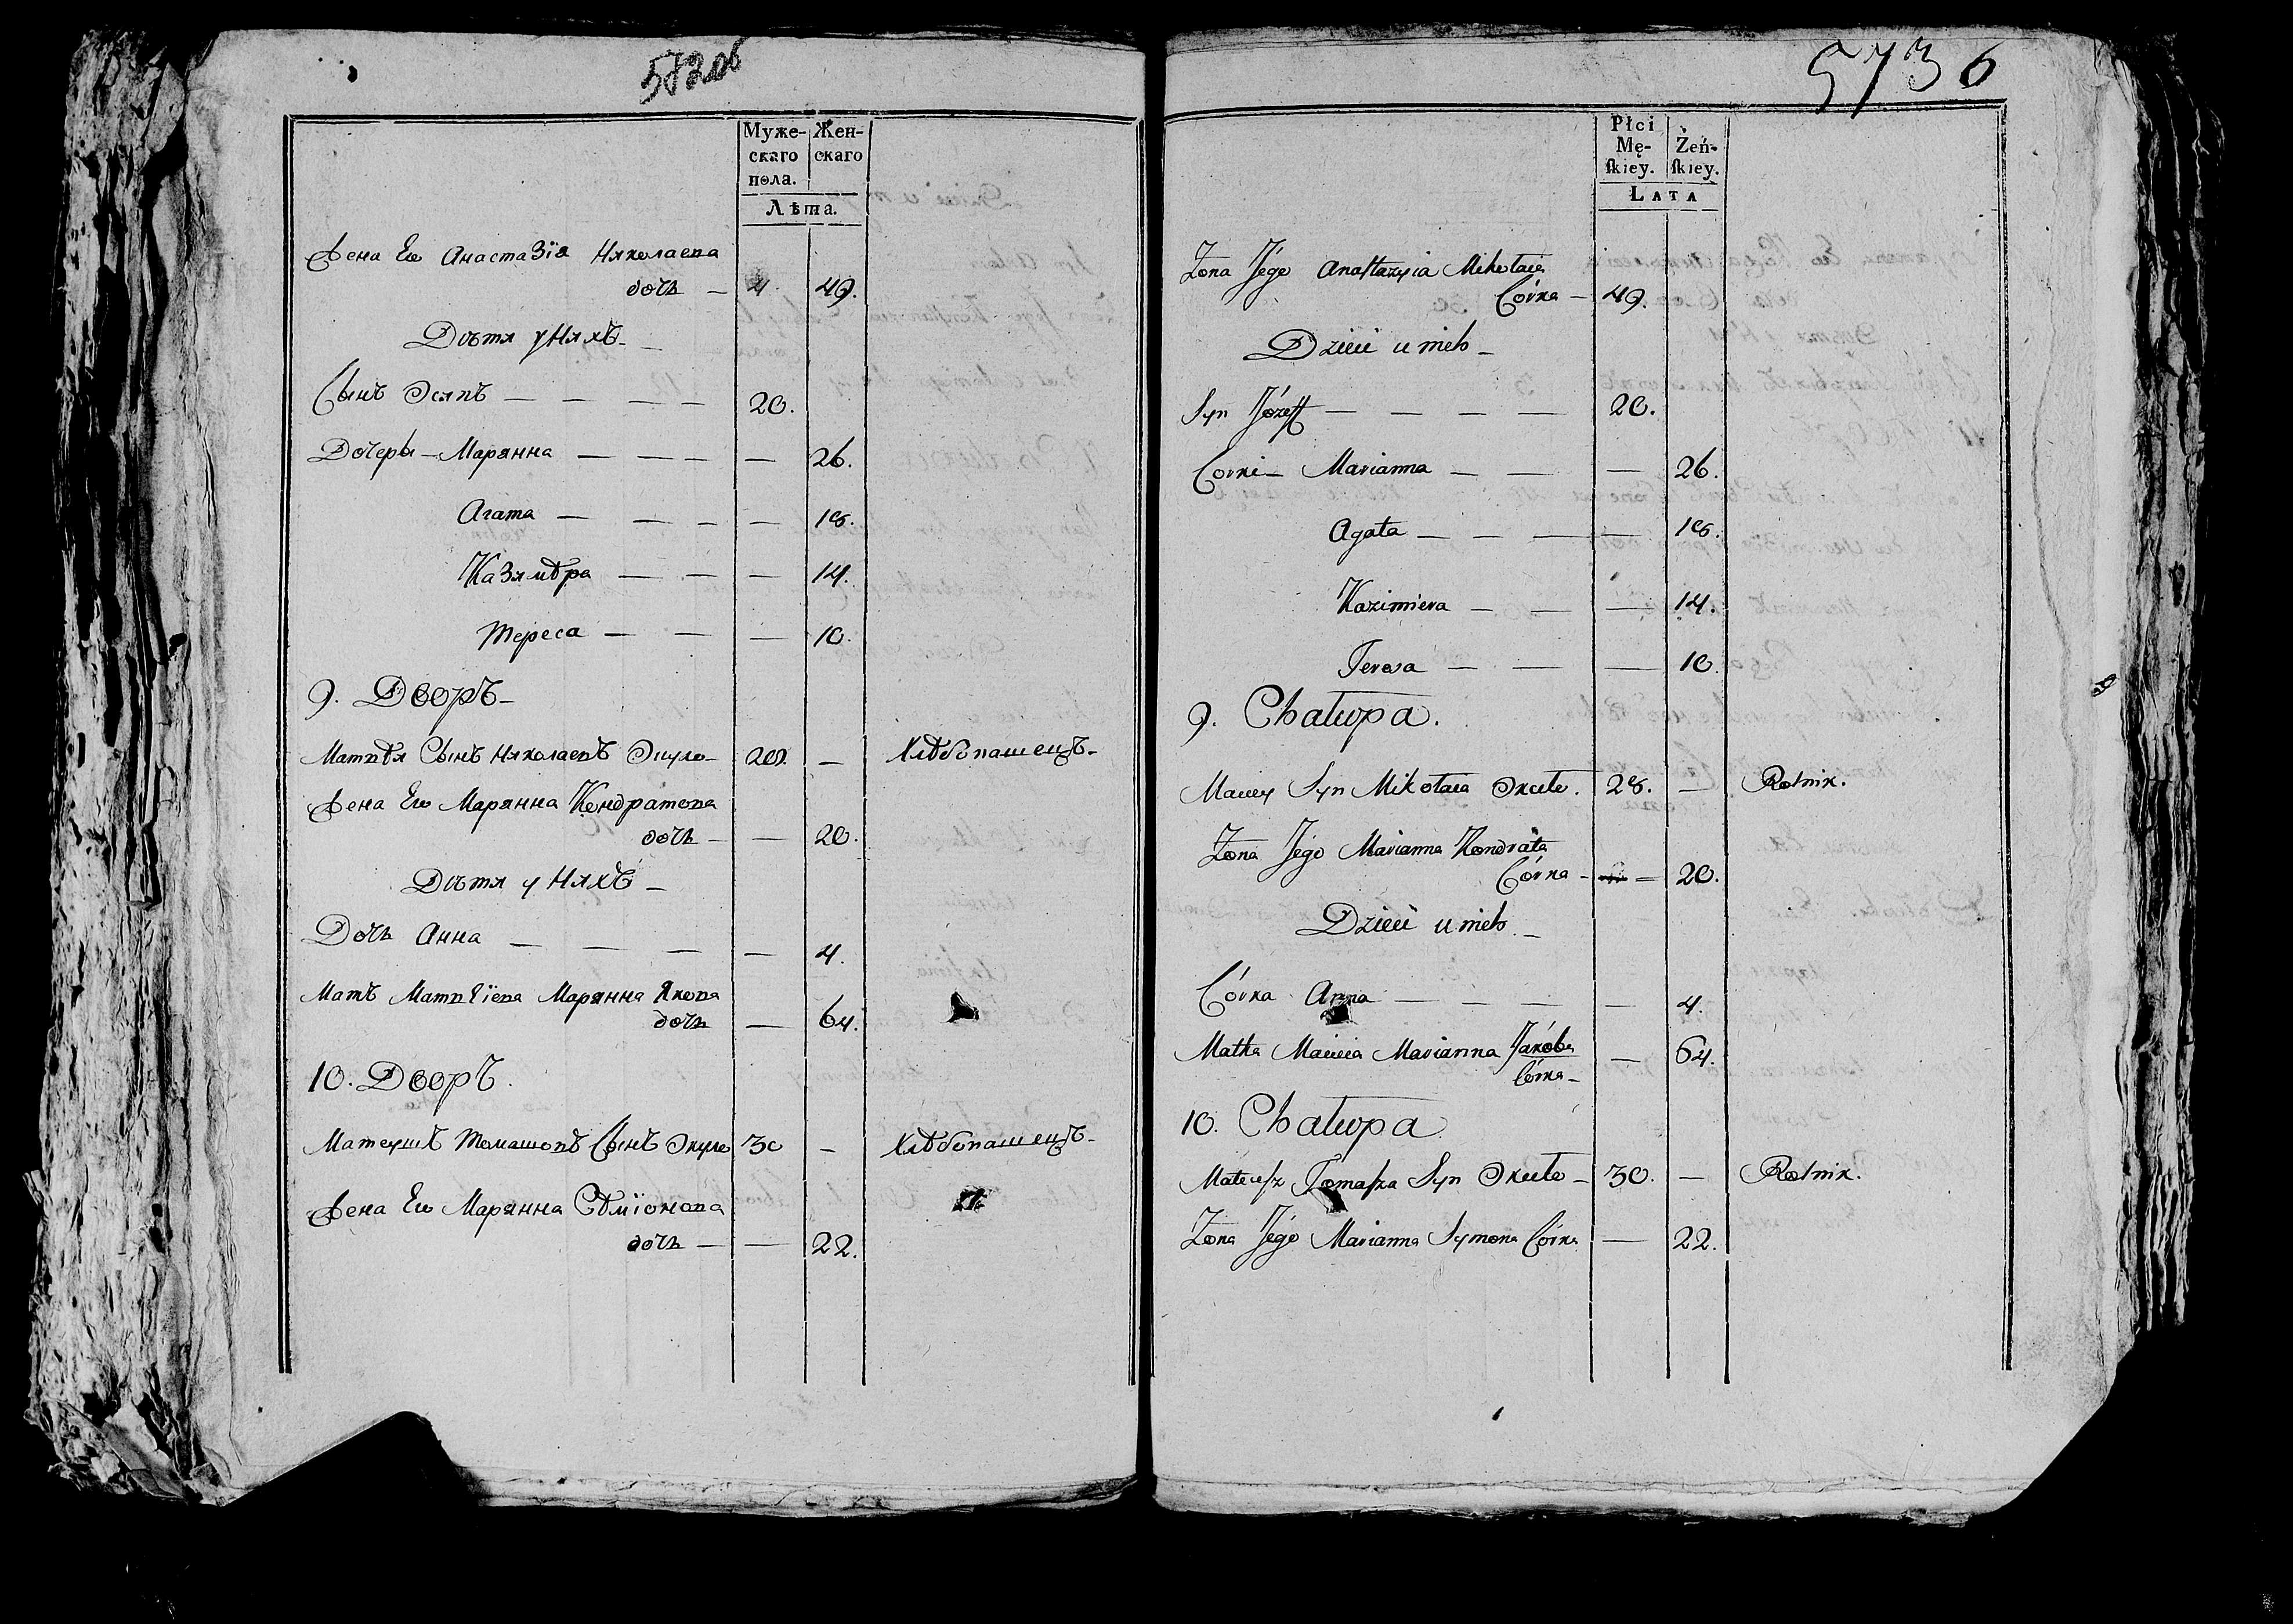 572об
Муже- Жен-
скаго скаго
пола.
Лѣта.
Жена Ево Анастазія Николаева
дочь — 49.
Дѣти у нихъ —
Сынъ Осипъ — — — — 20.
Дочеры — Марянна — — — — — 26.
Агата — — — — 18.
Казимѣра — — — 14.
Тереса — — — 10.
9. Дворъ —
Матвѣя Сынъ Николаевъ Экуло — 28. — Хлѣбопашецъ —
Жена Ево Марянна Кондратова
дочь — — 20.
Дѣти у нихъ —
Дочь Анна — — — — 4.
Мать Матвѣева Марянна Якова
дочь — 64.
10. Дворъ.
Матеушъ Томашовъ Сынъ Экуло 30 — Хлѣбопашецъ —
Жена Ево Марянна Сѣміонова
дочь — — 22.
5736
Płci
Mę- Żeń-
ſkiey. ſkiey.
LATA
Żona Jego Anaſtazyia Mikołaia
Córka — 49.
Dzieci u nich —
Syn Józeff — — — — 20.
Corki — Marianna — — — 26.
Agata — — — — 18.
Kazimiera — — — 14.
Teresa — — — 10.
9. Chałupa.
Maciey Syn Mikołaia Ekuło. 28. — Rolnik.
Żona Jego Marianna Kondrata
Córka — — 20.
Dzieci u nich —
Córka Anna — — — — — 4.
Matka Macieia Marianna Jakóba — 64.
Córka —
10. Chałupa
Mateuſz Tomaſza Syn Ekuło — 30. — Rolnik.
Żona Jego Marianna Symona Córka — 22.